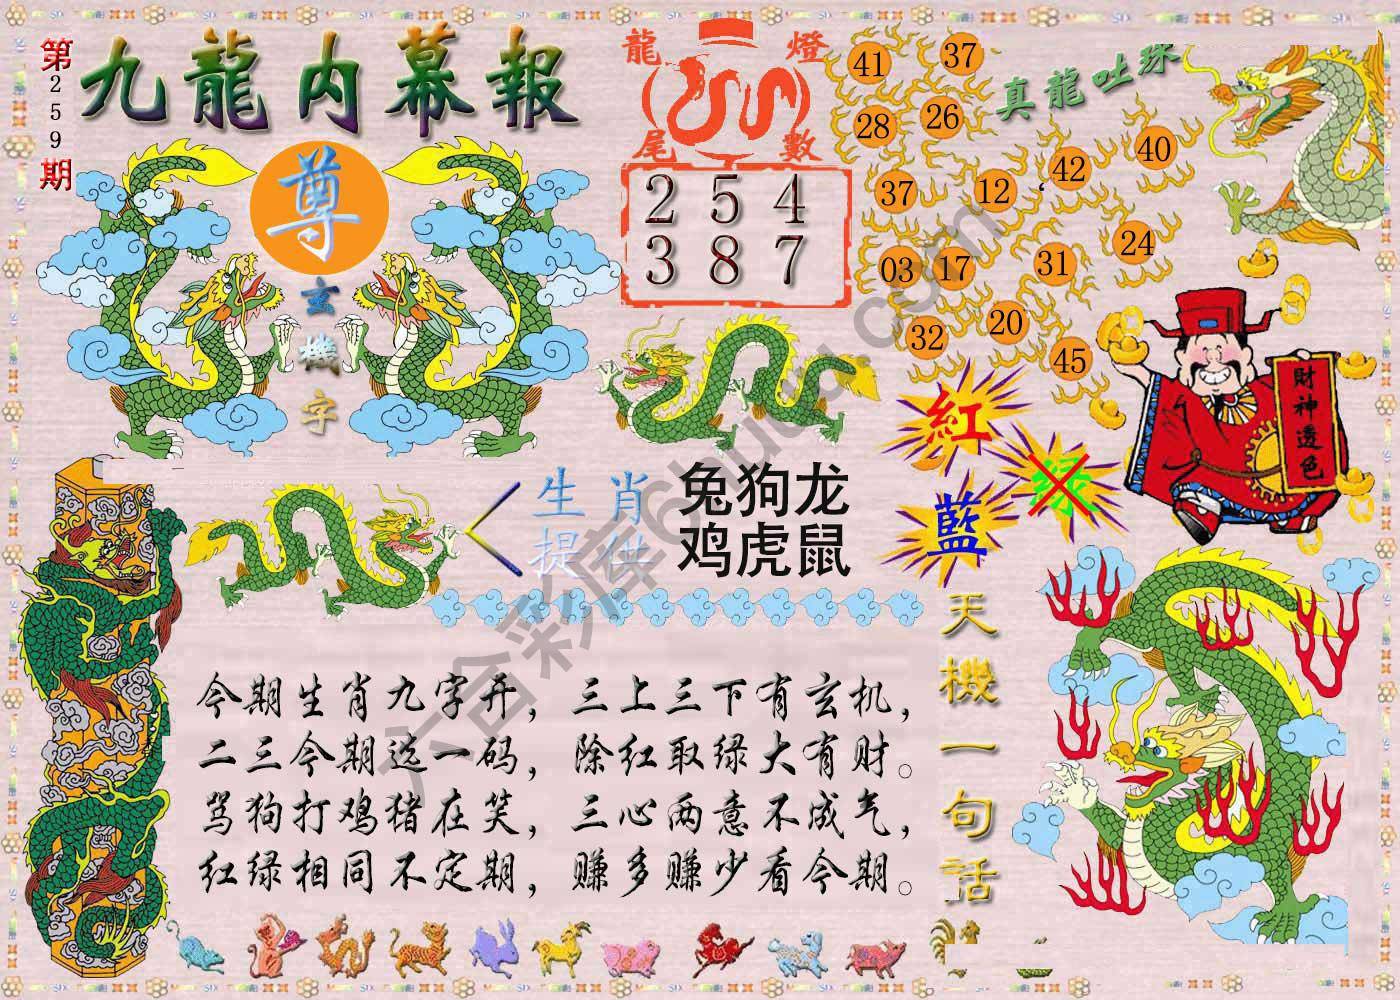 第259期
九龍内幕報
尊
玄機字
龍燈尾數
2 5 4
3 8 7
真龍吐珠
41
37
28
26
42
40
37
12
24
03
17
31
32
20
45
財神透色
紅
绿
藍
生肖
提供
兔狗龙
鸡虎鼠
天機一句话
今期生肖九字开，三上三下有玄机，
二三今期选一码，除红取绿大有财。
骂狗打鸡猪在笑，三心两意不成气，
红绿相同不定期，赚多赚少看今期。